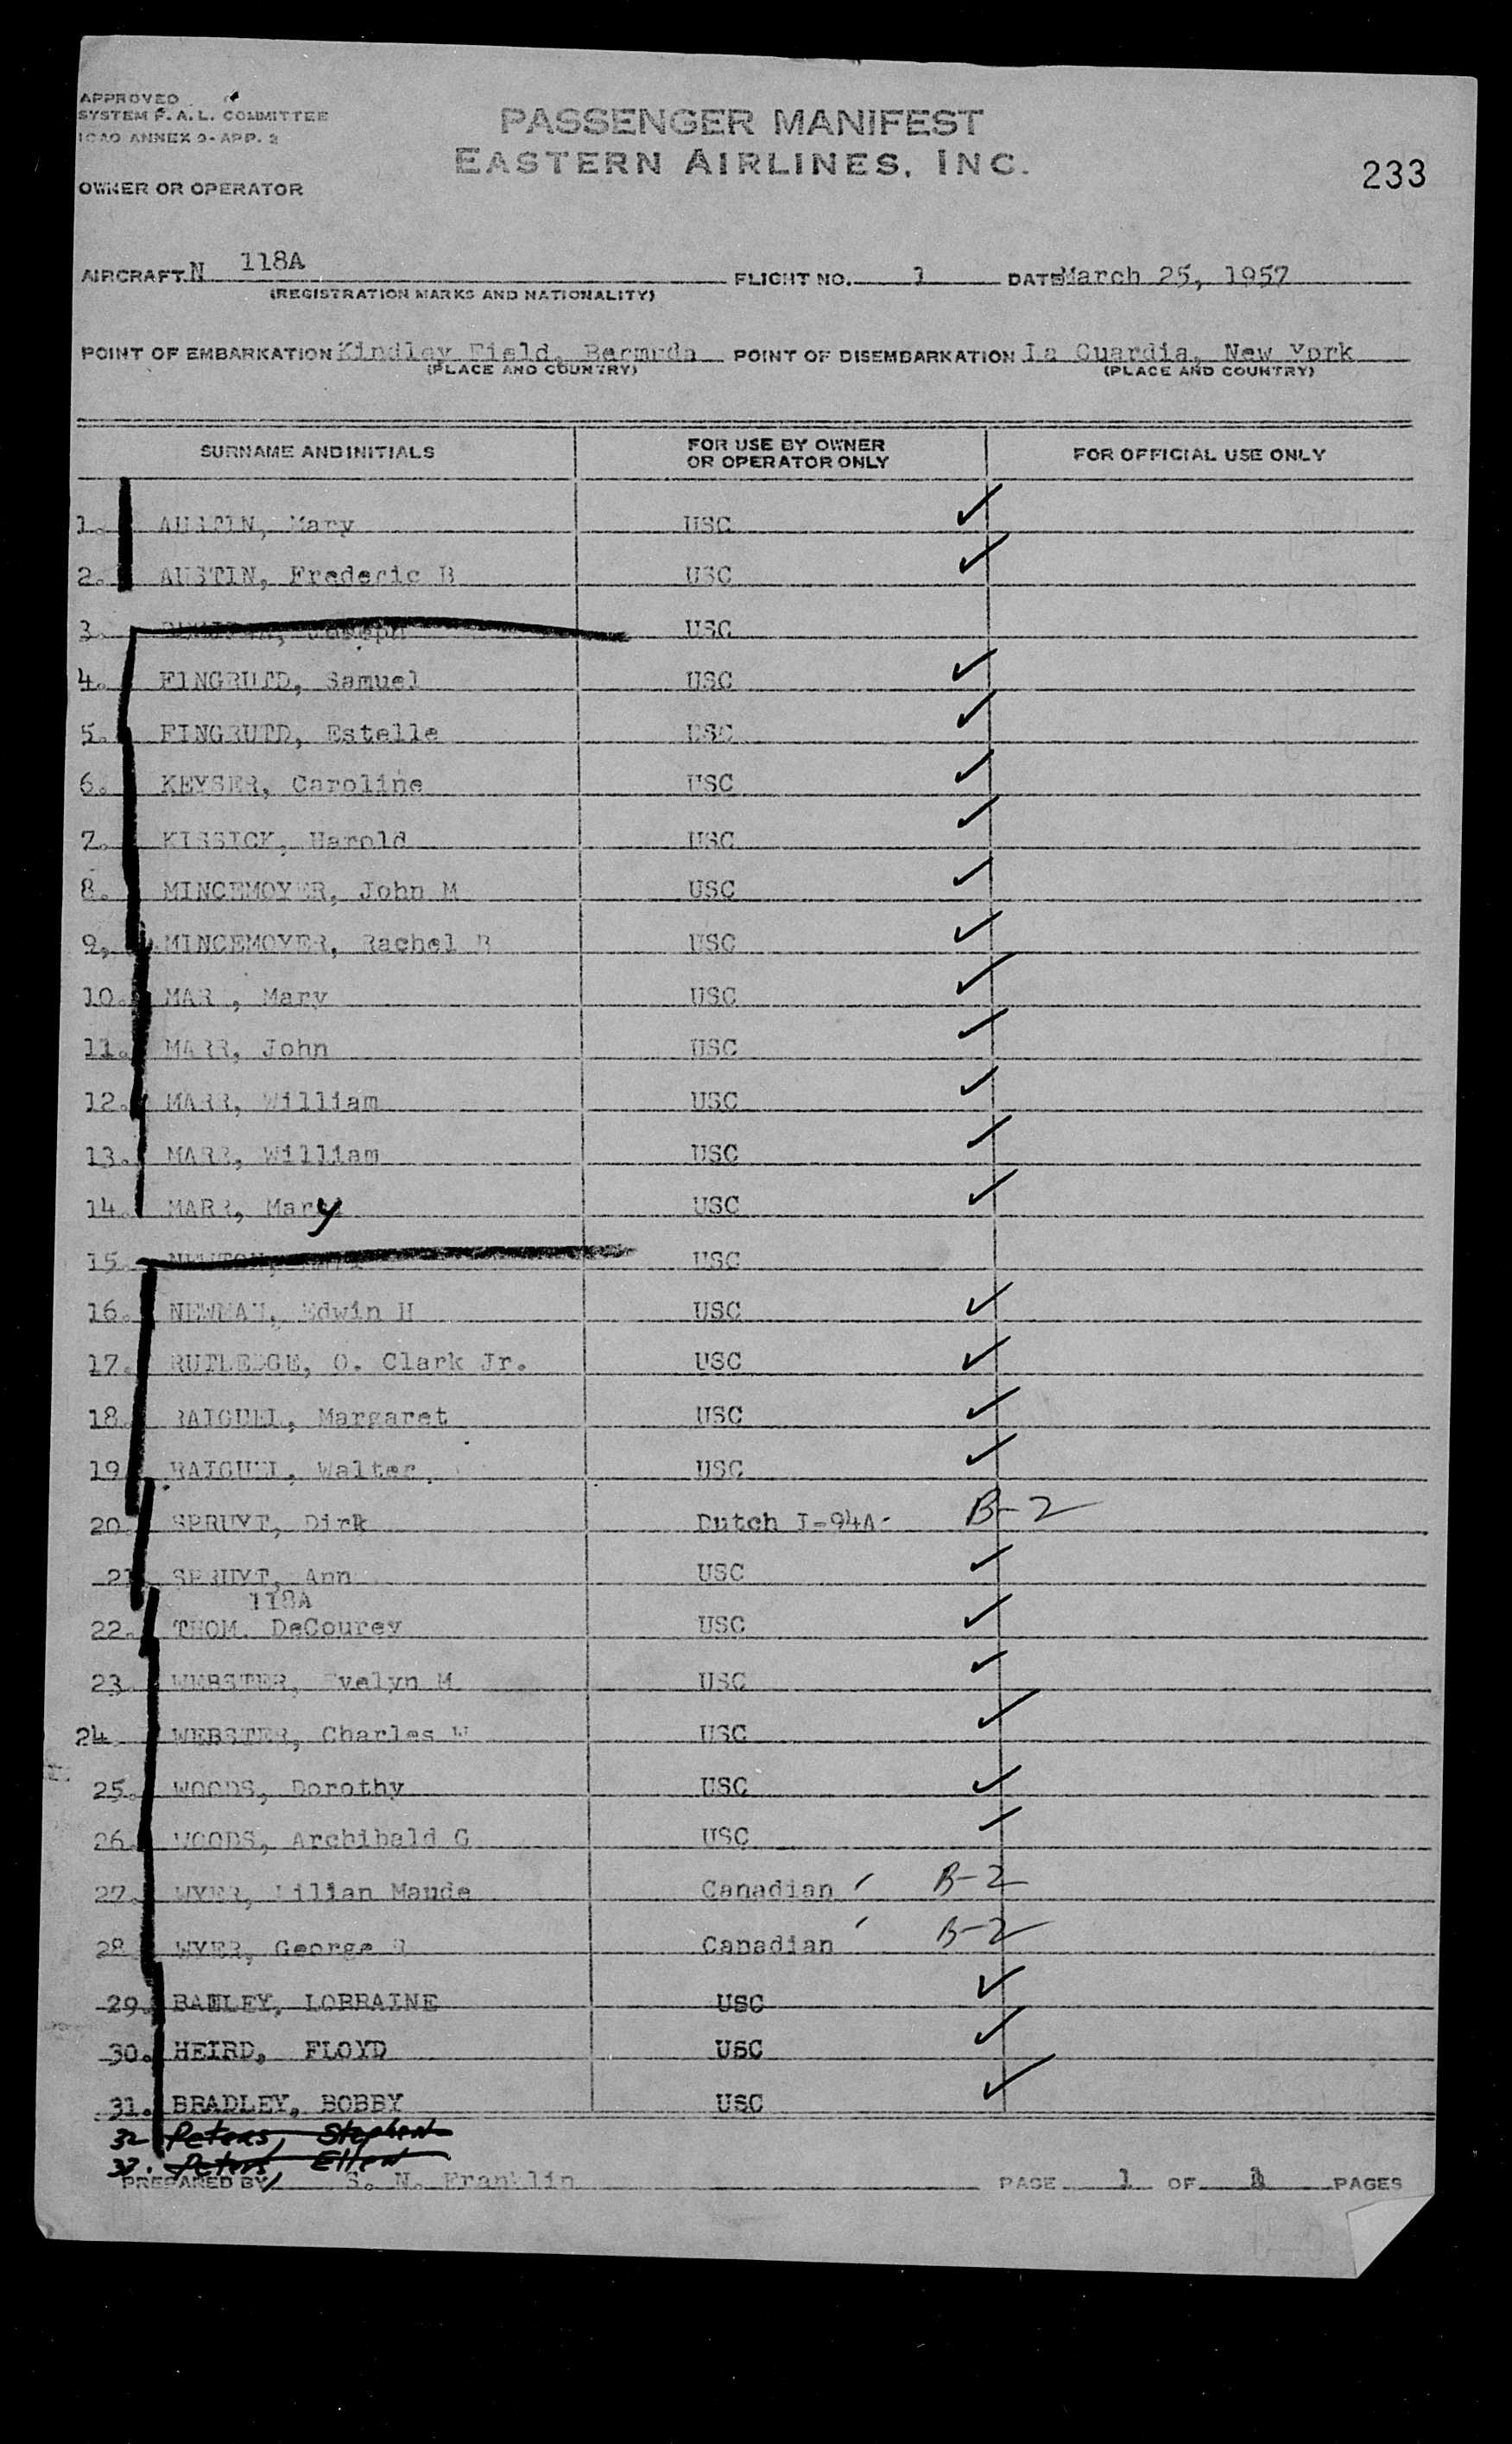 APPROVED
SYSTEM F.A.L. COMMITTEE
ICAO ANNEX 9-APP. 2
PASSENGER MANIFEST
EASTERN AIRLINES, INC.
233
OWNER OR OPERATOR
AIRCRAFT N 118A FLIGHT NO. 1 DATE March 25, 1957
(REGISTRATION MARKS AND NATIONALITY)
POINT OF EMBARKATION Kindley Field, Bermuda POINT OF DISEMBARKATION La Guardia, New York
(PLACE AND COUNTRY) (PLACE AND COUNTRY)
SURNAME AND INITIALS FOR USE BY OWNER OR OPERATOR ONLY FOR OFFICIAL USE ONLY
1. AUSTIN, Mary USC ✓
2. AUSTIN, Frederic B USC ✓
3. Joseph USC
4. FINGRUTD, Samuel USC ✓
5. FINGRUTD, Estelle USC ✓
6. KEYSER, Caroline USC ✓
7. KISSICK, Harold USC ✓
8. MINCEMOYER, John M USC ✓
9, MINCEMOYER, Rachel B USC ✓
10. MAR , Mary USC ✓
11. MARR, John USC ✓
12. MARR, William USC ✓
13. MARR, William USC ✓
14. MARR, Mary USC ✓
15. NEWTON, USC
16. NEWMAN, Edwin H USC ✓
17. RUTLEDGE, O. Clark Jr. USC ✓
18. RAIGUEL, Margaret USC ✓
19. RAIGUEL, Walter USC ✓
20. SPRUYT, Dirk Dutch I-94A- B-2
21. SPRUYT, Ann USC ✓
118A
22. THOM. DeCourey USC ✓
23. WEBSTER, Evelyn M USC ✓
24. WEBSTER, Charles W USC ✓
25. WOODS, Dorothy USC ✓
26. WOODS, Archibald G USC ✓
27. WYER, Lilian Maude Canadian B-2
28. WYER, George R Canadian B-2
29. LORRAINE USC ✓
30. HEIRD, FLOYD USC ✓
31. BRADLEY, BOBBY USC ✓
32 Peters, Stephen
33. Peters Ellen
PREPARED BY S. N. Franklin PAGE 1 OF 1 PAGES